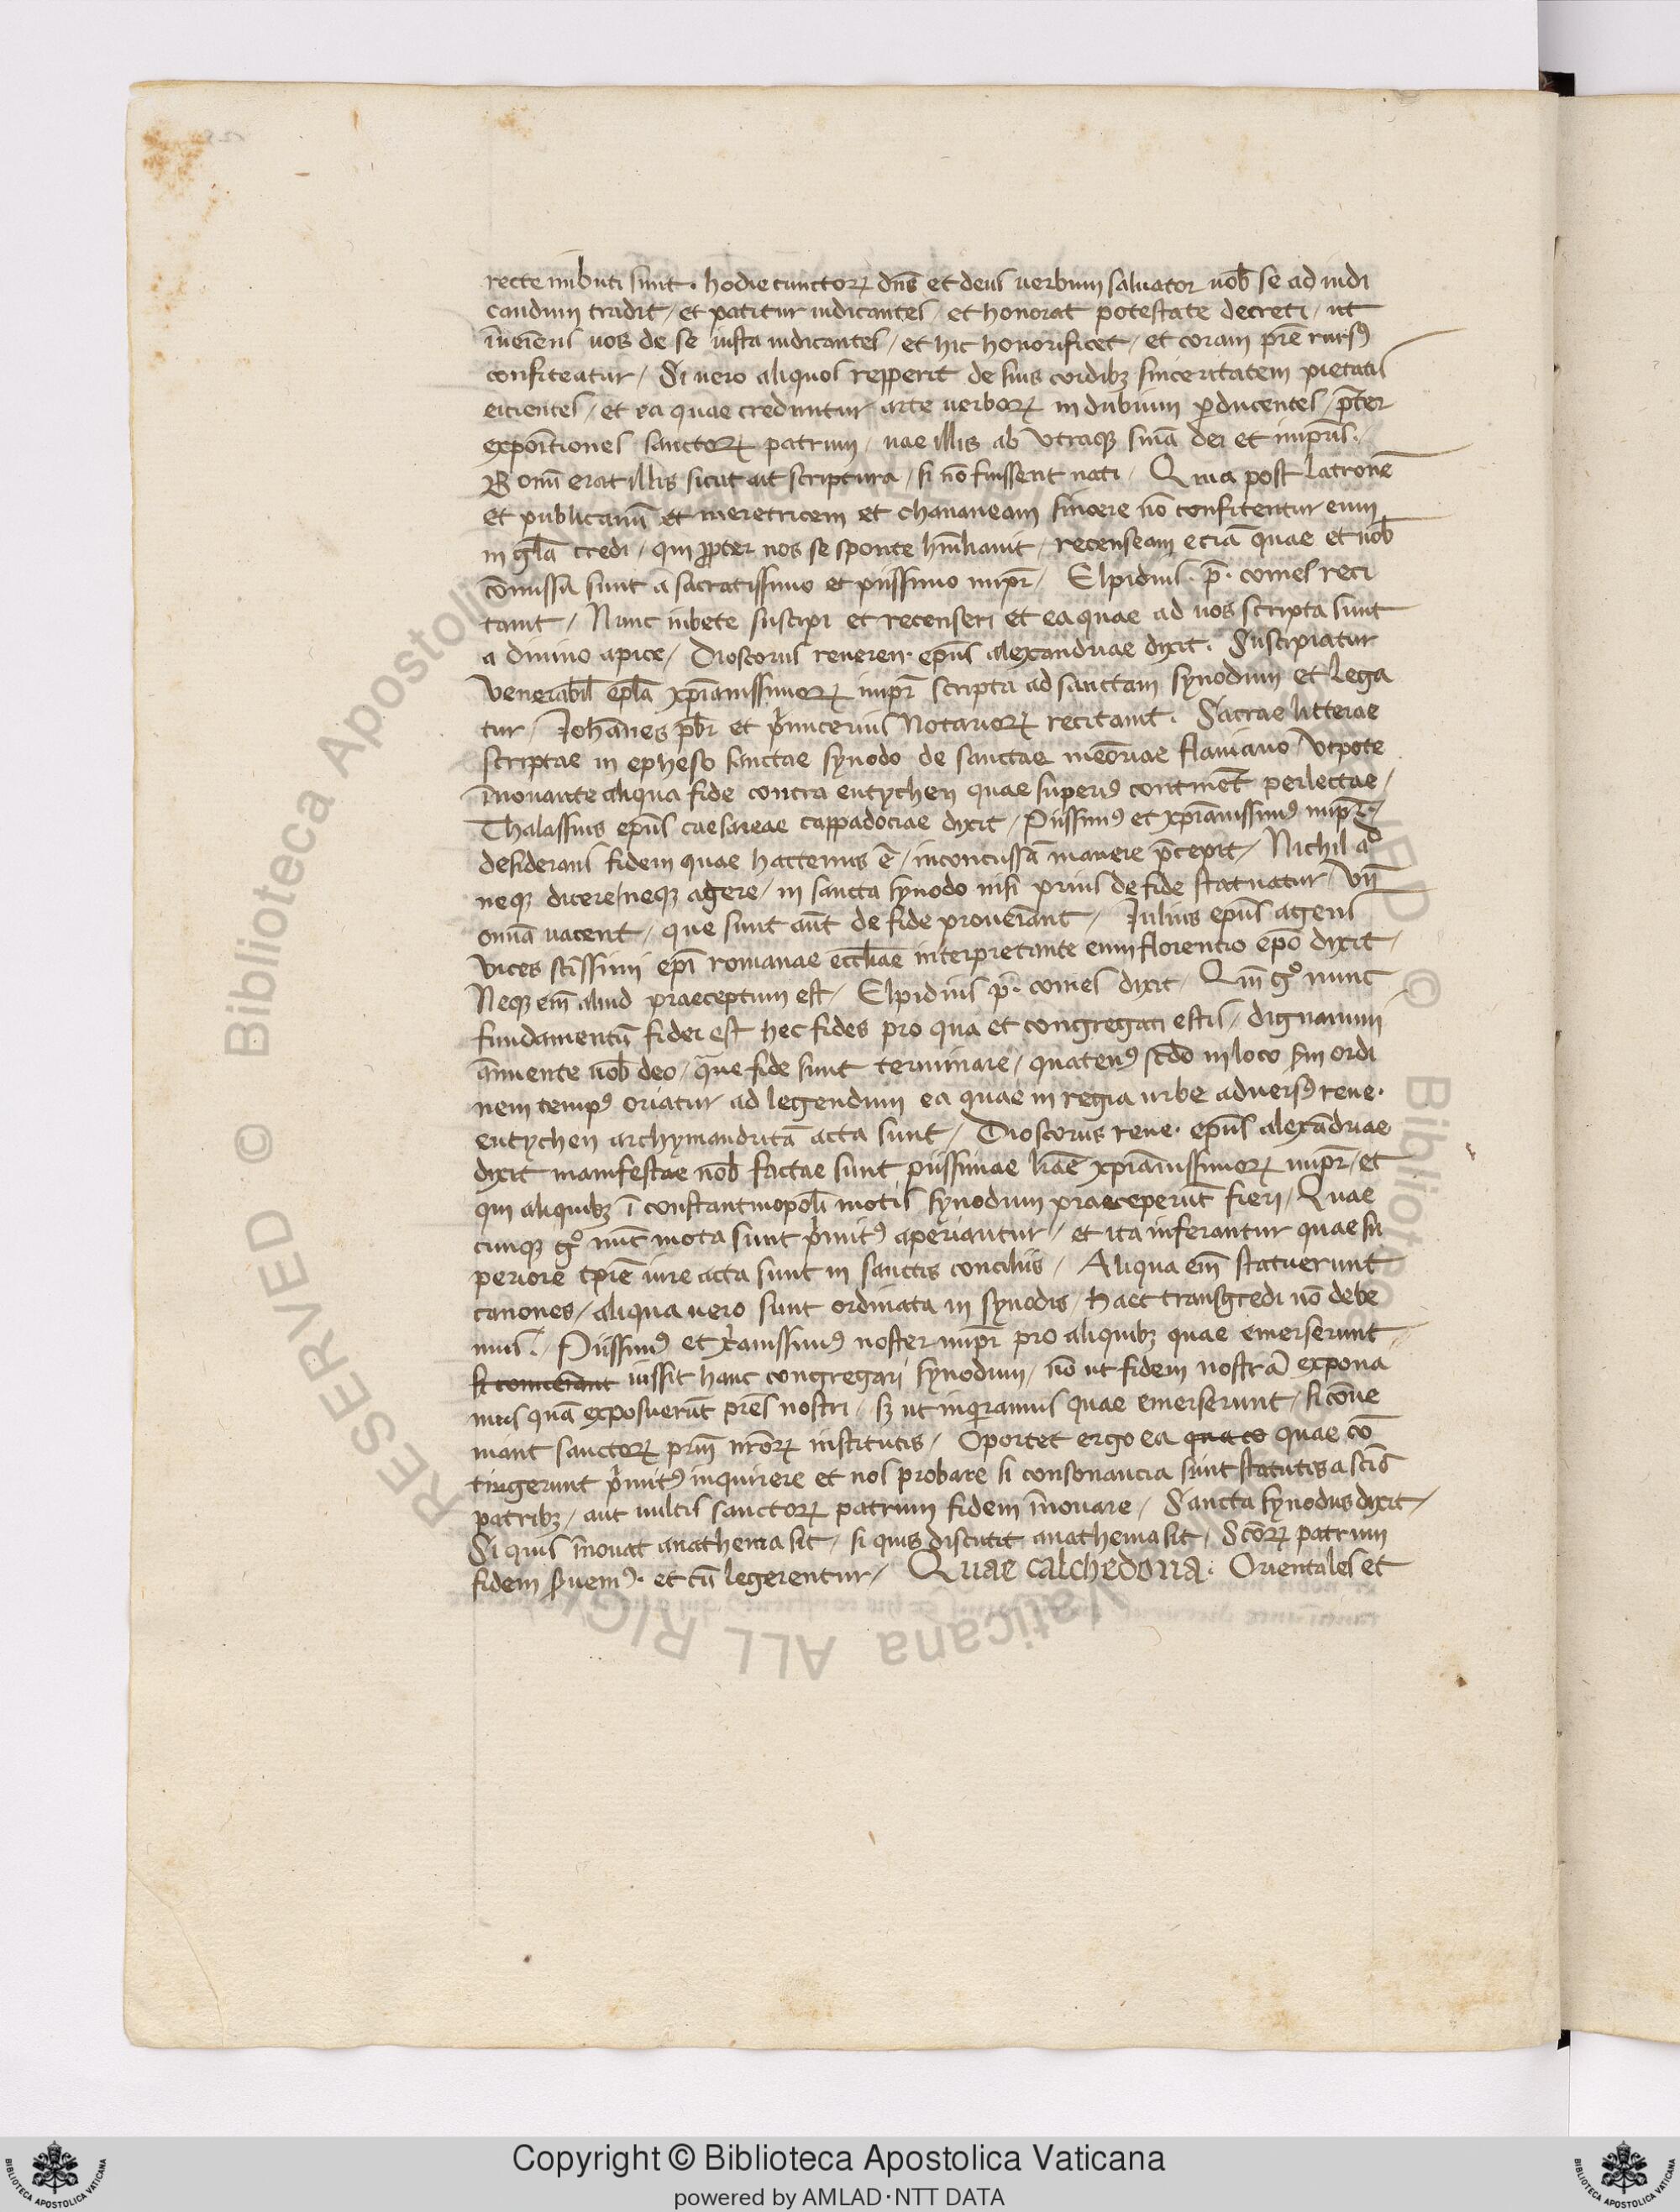 recte imbuti sunt. hodie cunctoꝝ dn̄s et deus uerbum saluator uob̄ se ad iudi
candum tradit / et patitur iudicantes / et honorat potestate decreti / ut
īueīens uos de se iusta iudicantes / et hic honorificet / et coram pr̄e rursꝰ
confiteatur / Si uero aliquos repperit de suis cordibꝫ sinceritatem pietatis
eicientes / et ea quae creduntur arte uerboꝝ in dubium ꝓducentes / p̄ter
expoītiones sanctoꝝ patrum / uae illis ab vtraqꝫ sn̄ia dei et imp̄ris. /
Bonū erat illis sicut ait scriptura / si nō fuissent nati / Quia post latronē
et publicanū et meretricem et chananeam sincere nō confitentur eum
in gl̄a credi / qui ꝓpter nos se sponte hūiliauit / recenseam eciā quae et uob̄
cōmissa sunt a sacratissimo et piissimo imp̄r / Elpidius. p̄. comes reci
tauit / Nunc iubete suscipi et recenseri et ea quae ad uos scripta sunt
a diuino apice / Dioscorus reueren. ep̄us alexandriae dixit. Suscipiatur
venerabil̄ ep̄la xp̄ianissimoꝝ imp̄r scripta ad sanctam synodum et lega
tur / Johānes p̄br et p̓micerius Notarioꝝ recitauit. Sacrae litterae
scriptae in epheso sanctae synodo de sanctae meōriae flauiano / vtpote
īnouante aliqua fide contra eutychen quae superiꝰ continēt perlectae /
Thalassius ep̄us caesareae cappadociae dixit / Piissimꝰ et xp̄ianissimꝰ imp̄r. /
desiderans fidem quae hactenus ē / inconcussā manere p̄cepit / Nichil ad
neqꝫ dicere / neqꝫ agere / in sancta synodo nisi prius de fide statuatur / vn̄
omīa uacent / que sunt aūt de fide proueīant / Julius ep̄us agens
vices sc̄issimi ep̄i romanae eccl̄iae interpretante eum florentio ep̄o dixit /
Neqꝫ em̄ aliud praeceptum est / Elpidius p̄. comes dixit / Qm̄ gͦ nunc
fundamentū fidei est hec fides pro qua et congregati estis / dignamini
ānuente uob̄ deo / que fide sunt terminare / quatenꝰ sc̄do in loco s̄m ordi
nem tempꝰ oriatur ad legendum ea quae in regia urbe aduersꝰ reue.
eutychen archymandritā acta sunt / Dioscorus reue. ep̄us alexādriae
dixit manifestae nob̄ factae sunt piissimae lr̄ae xp̄ianissimoꝝ imp̄r / et
qui aliquibꝫ ī constantinopol̄i motis synodum praeceperūt fieri / Quae
cunqꝫ gͦ nūc mota sunt p̓mitꝰ aperiantur / et ita inferantur quae su
periore tp̄re iure acta sunt in sanctis conciliis / Aliqua em̄ statuerunt
canones / aliqua uero sunt ordinata in synodis / haec transgredi nō debe
mus. / Piissimꝰ et xr̄anissimꝰ noster imp̄r pro aliquibꝫ quae emerserunt /
si conueīant iussit hanc congregari synodum / nō ut fidem nostrā expona
mus quā exposuerūt pr̄es nostri / sꝫ ut inq̓ramus quae emerserunt / si cōue
niant sanctoꝝ pr̄m nr̄oꝝ institutis / Oportet ergo ea quae co quae cō
tingerunt p̓mitꝰ inquirere et nos probare si consonancia sunt statutis a sc̄is
patribꝫ / aut uultis sanctoꝝ patrum fidem īnouare / Sancta synodus dixit /
Si quis īnouat anathema sit / si quis discutit anathema sit / Sc̄oꝝ patrum
fidem ẜuemꝰ. et cū legerentur / Quae calchedona. Orientales et
Copyright © Biblioteca Apostolica Vaticana
powered by AMLAD·NTT DATA